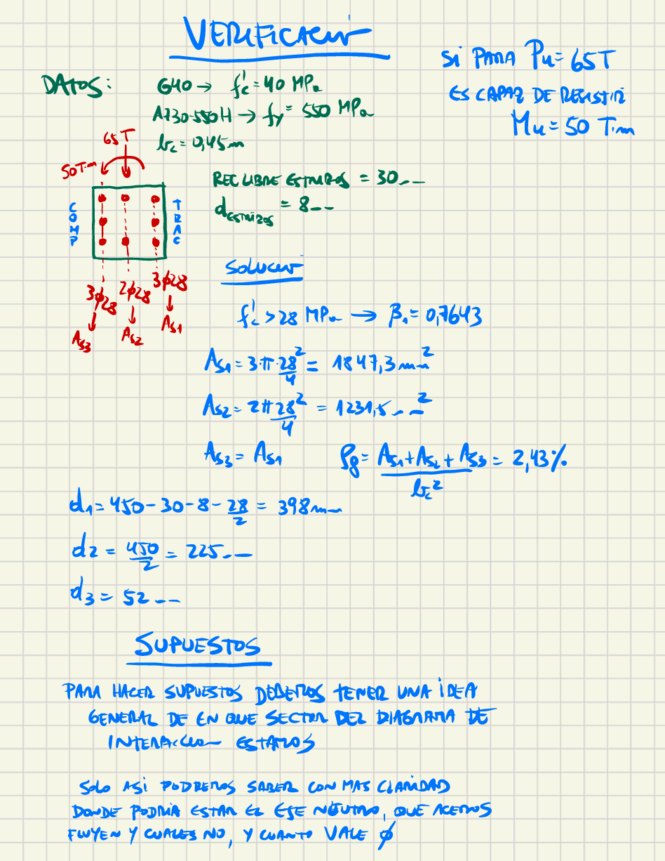 VERIFICACION
SI PARA Pu = 65T
ES CAPAZ DE RESISTIR
Mu = 50 T·m
DATOS:
G40 → f'c = 40 MPa
A730-550H → fy = 550 MPa
bc = 0,45m
REC LIBRE ESTRIBOS = 30mm
dESTRIBOS = 8mm
65T
50T·m
COMP
TRAC
3φ28
2φ28
3φ28
As3
As2
As1
SOLUCION
f'c > 28 MPa → β1 = 0,7643
As1 = 3·π·28²/4 = 1847,3 mm²
As2 = 2π 28²/4 = 1231,5 mm²
As3 = As1
ρg = As1 + As2 + As3 / bc² = 2,43%
d1 = 450 - 30 - 8 - 28/2 = 398mm
d2 = 450/2 = 225mm
d3 = 52mm
SUPUESTOS
PARA HACER SUPUESTOS DEBEMOS TENER UNA IDEA
GENERAL DE EN QUE SECTOR DEL DIAGRAMA DE
INTERACCION ESTAMOS
SOLO ASI PODREMOS SABER CON MAS CLARIDAD
DONDE PODRIA ESTAR EL EJE NEUTRO, QUE ACEROS
FLUYEN Y CUALES NO, Y CUANTO VALE φ